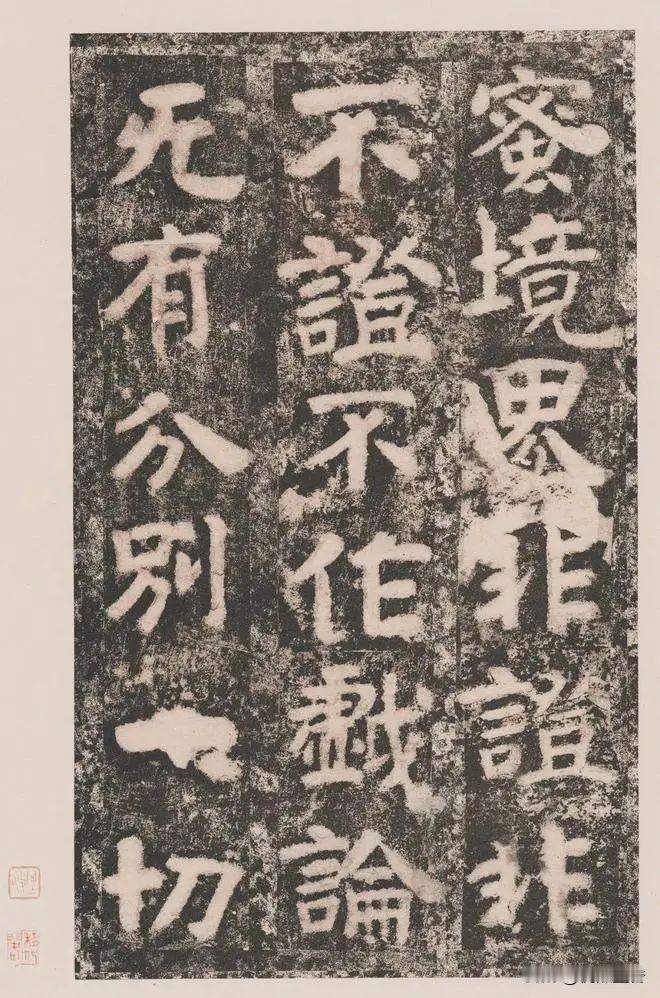 蜜境界非證非
不證不作戱論
无有分別一切